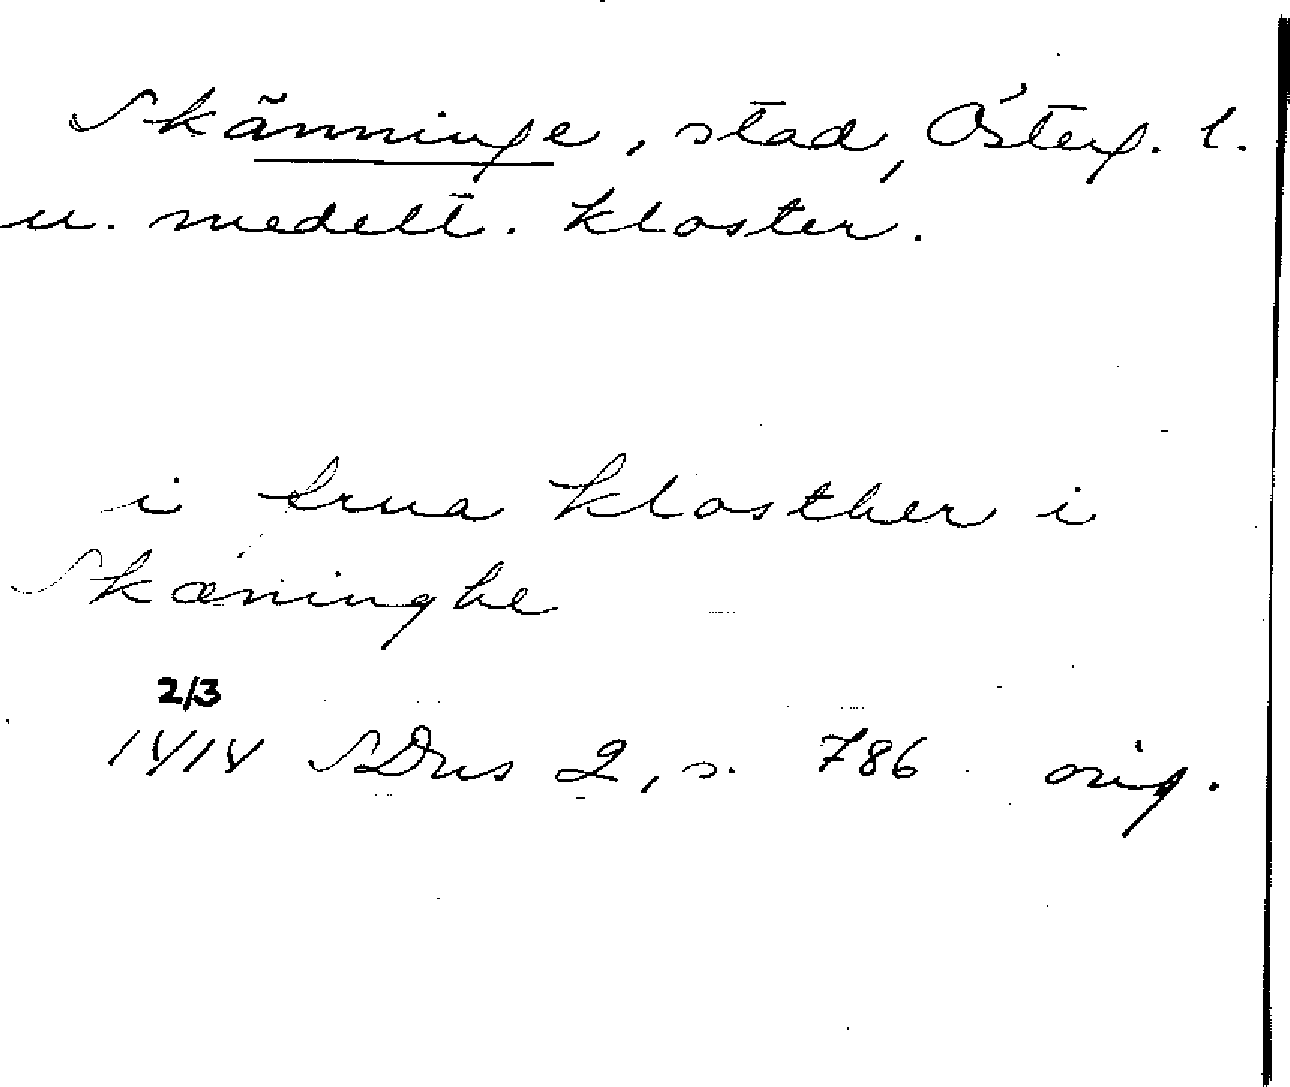 Skänninge, stad, Österg. l.
u. medelt. kloster.
i frua klosther i
Skæninghe
2/3
1414 SDns 2, s. 786 orig.